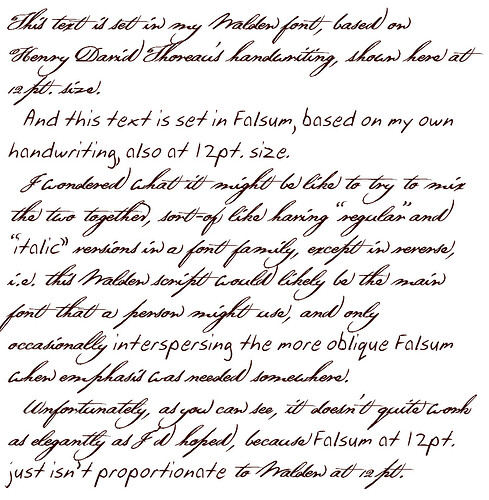 This text is set in my Walden font, based on
Henry David Thoreau's handwriting, shown here at
12 pt. size.
And this text is set in Falsum, based on my own
handwriting, also at 12pt. size.
I wondered what it might be like to try to mix
the two together, sort of like having "regular" and
"italic" versions in a font family, except in reverse,
i.e. this Walden script would likely be the main
font that a person might use, and only
occasionally interspersing the more oblique Falsum
when emphasis was needed somewhere.
Unfortunately, as you can see, it doesn't quite work
as elegantly as I'd hoped, because Falsum at 12pt.
just isn't proportionate to Walden at 12 pt.